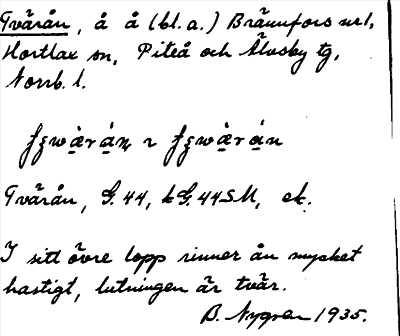 Tvärån, å å (bl. a.) Brännfors nr 1,
Hortlax sn, Piteå och Älvsby tg,
Norrb. l.
Tvärån, G. 44, kG. 44SM, ek.
I sitt övre lopp rinner ån mycket
hastigt, lutningen är tvär.
B. Nygren 1935.